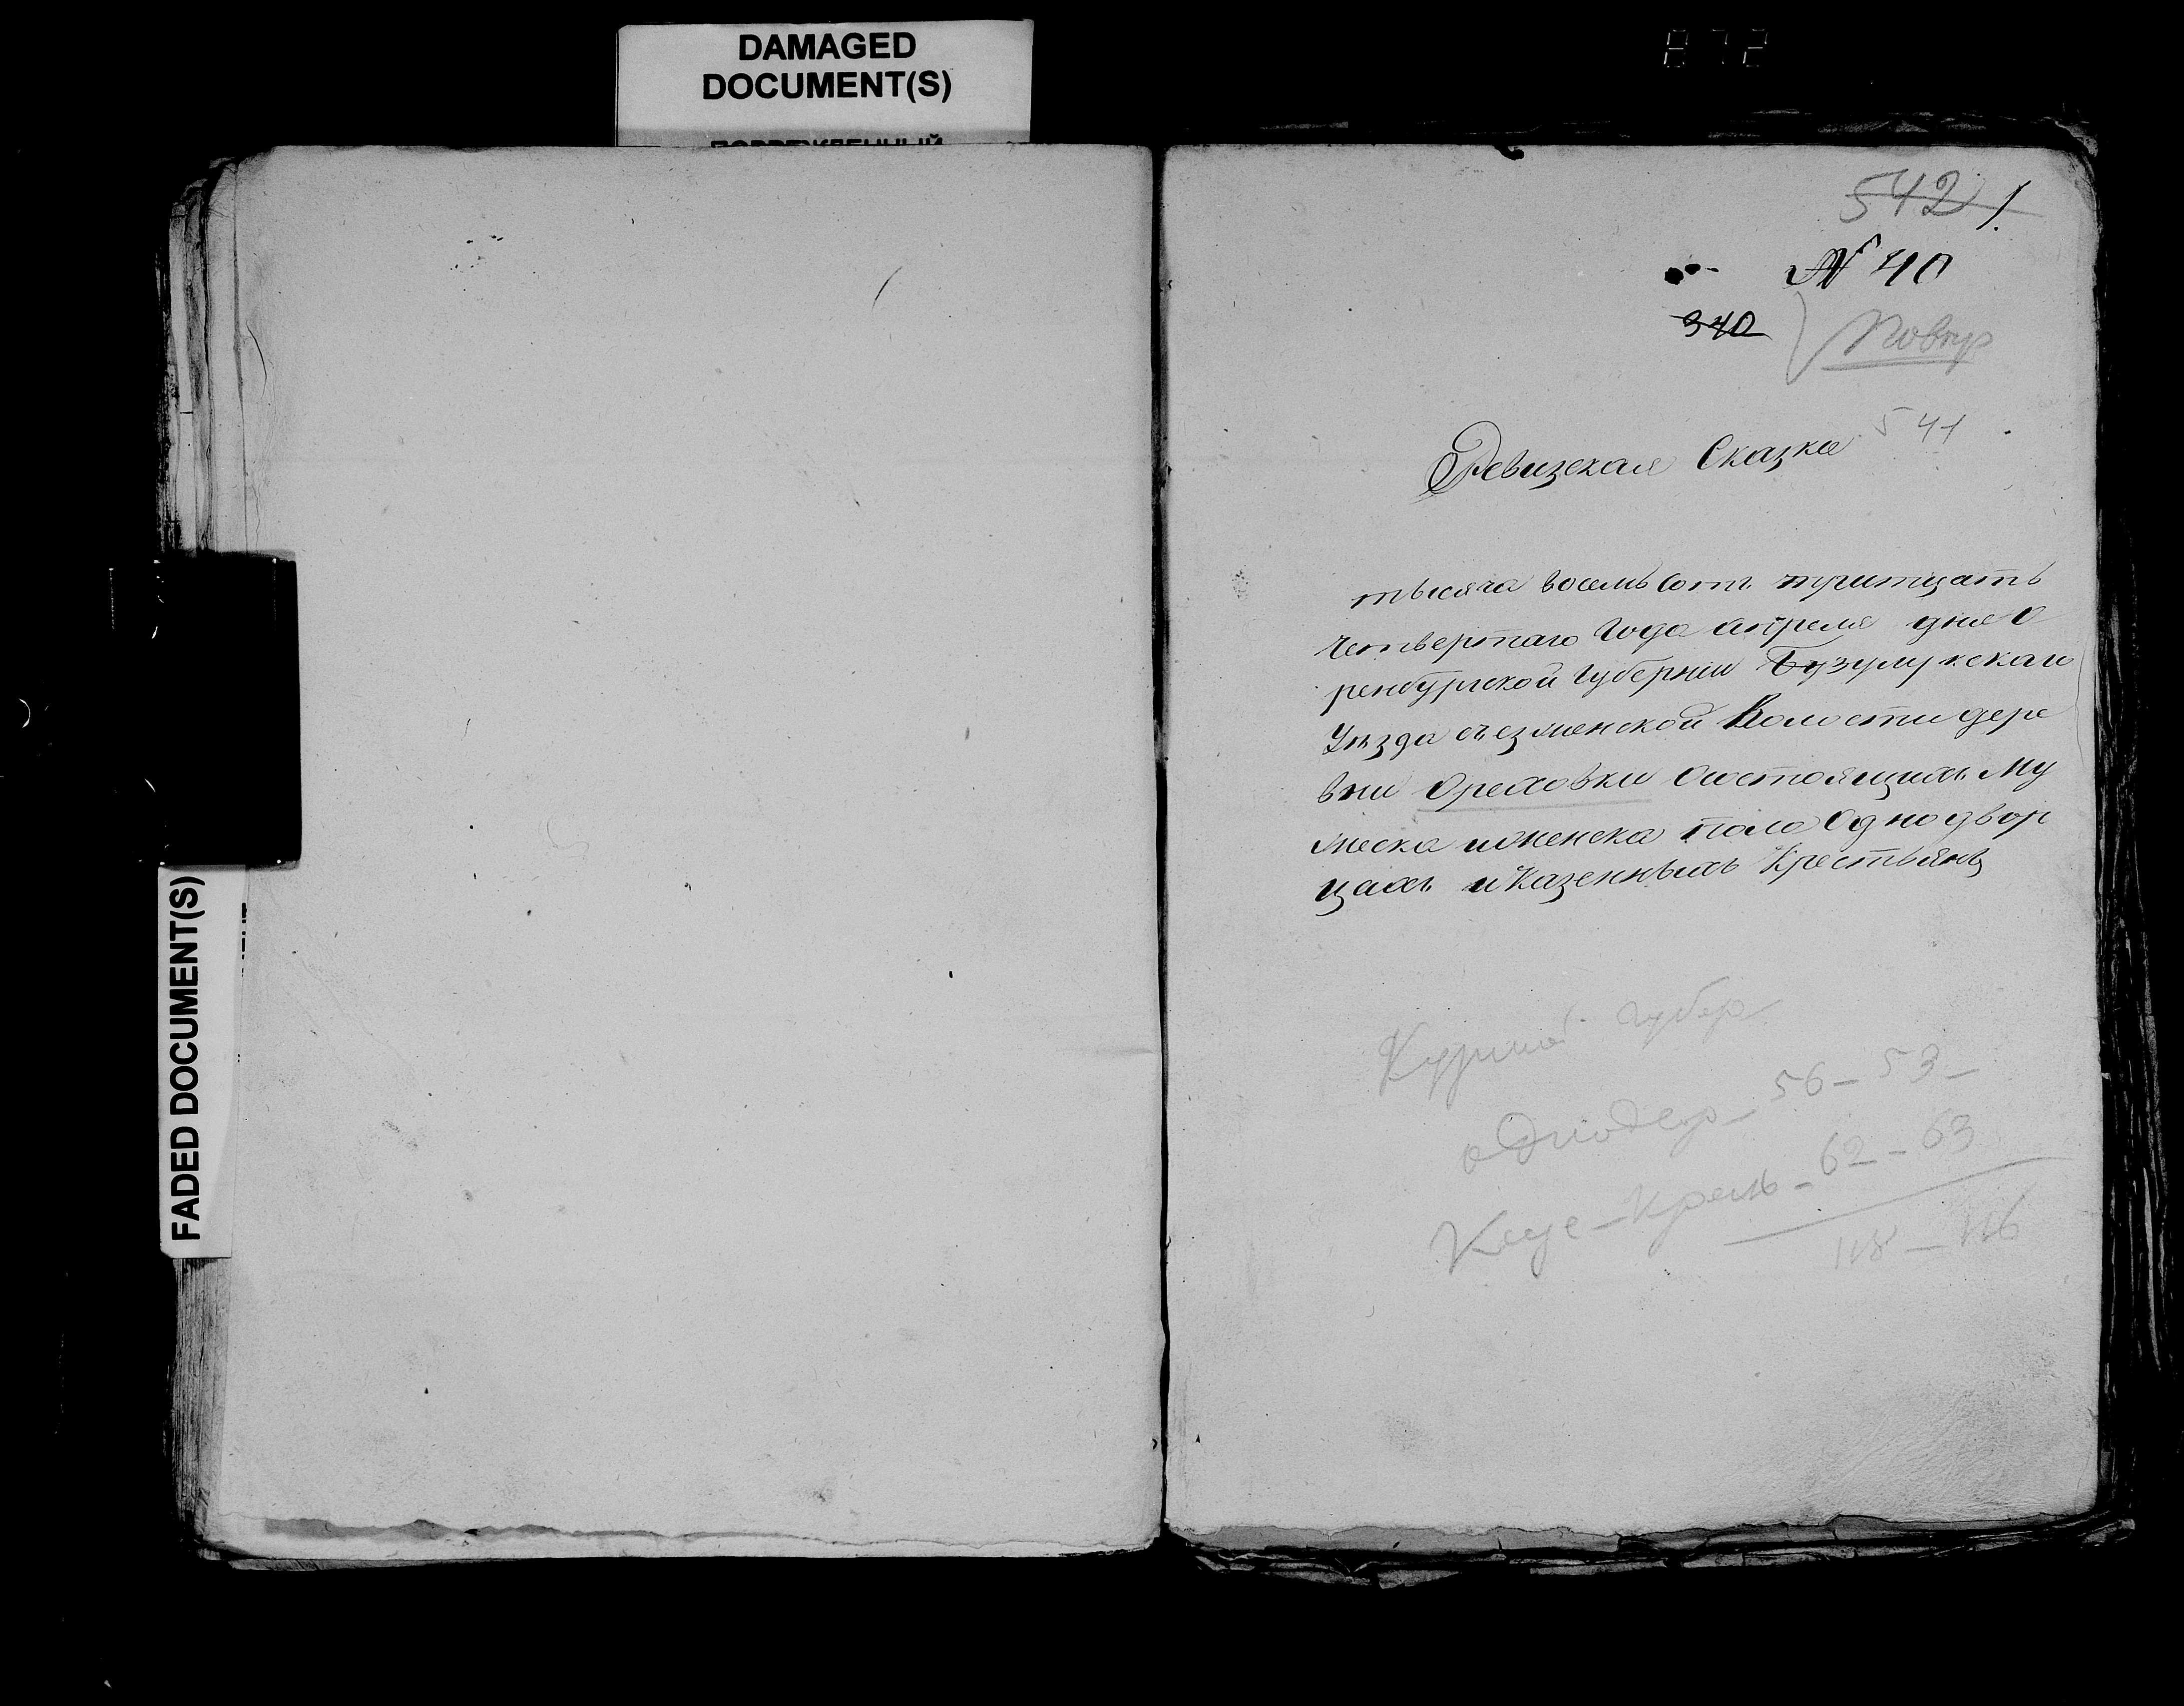 DAMAGED
DOCUMENT(S)
ПОВРЕЖДЕННЫЙ
872
FADED DOCUMENT(S)
542 1.
№ 40
340
Повтр
541
Ревизская Сказка
тысяча восемьсотъ тритцать
четвертаго Года апреля дня О
ренбургской Губернии Бузулукскаго
Уезда съезженской Волости дере
вни Ореховки состоящихъ му
жеска иженска пола Однодвор
цахъ иКазенныхъ Крестьянъ
Курской губер
однодвор - 56 - 53 -
Казе - Крест - 62 - 63
118 - 116